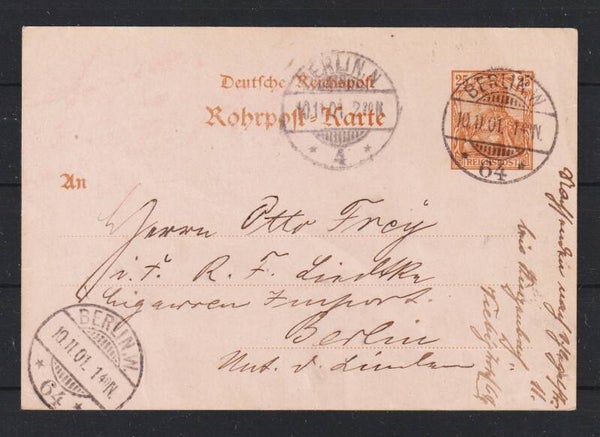 Deutsche Reichspost
Rohrpost-Karte
BERLIN.N.
10.11.01. 2
* 4 *
25 25
REICHSPOST
BERLIN.W.
10.11.01. 1
* 64 *
An
Herrn Otto Frey
i. F. R. F. Liedtke
Cigarren Import.
Berlin
Unt. d. Linden
BERLIN.W.
10.11.01. 1
* 64 *